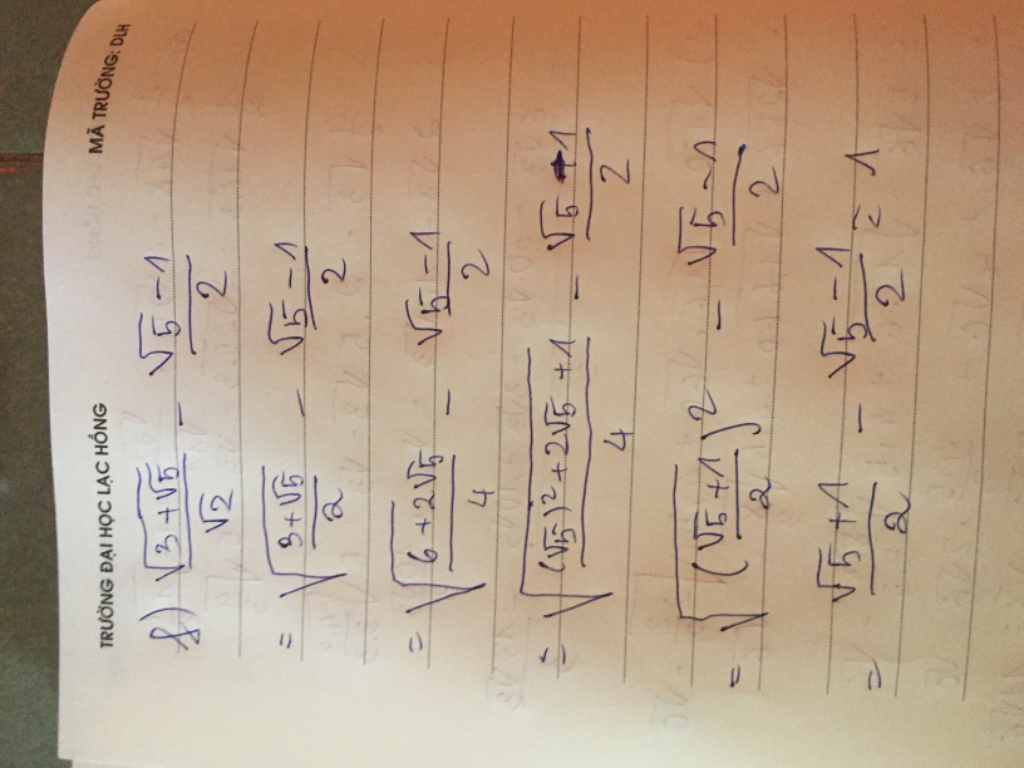 TRƯỜNG ĐẠI HỌC LẠC HỒNG MÃ TRƯỜNG: DLH
f) √(3+√5)/√2 - (√5-1)/2
= √((3+√5)/2) - (√5-1)/2
= √((6+2√5)/4) - (√5-1)/2
= √(((√5)²+2√5+1)/4) - (√5-1)/2
= √(((√5+1)/2)²) - (√5-1)/2
= (√5+1)/2 - (√5-1)/2 = 1